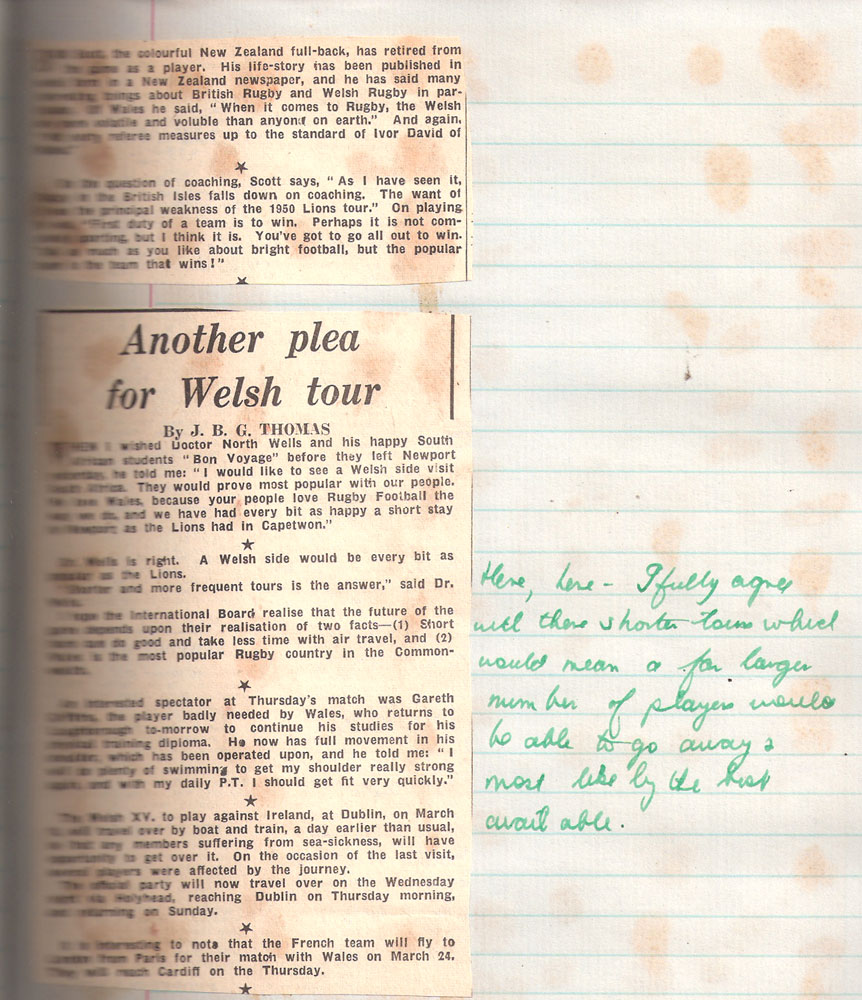 the colourful New Zealand full-back, has retired from
the game as a player. His life-story has been published in
in a New Zealand newspaper, and he has said many
things about British Rugby and Welsh Rugby in par-
Of Wales he said, "When it comes to Rugby, the Welsh
volatile and voluble than anyone on earth." And again,
referee measures up to the standard of Ivor David of
★
question of coaching, Scott says, "As I have seen it,
in the British Isles falls down on coaching. The want of
the principal weakness of the 1950 Lions tour." On playing
"First duty of a team is to win. Perhaps it is not com-
sporting, but I think it is. You've got to go all out to win.
as much as you like about bright football, but the popular
team is the team that wins!"
★
Another plea
for Welsh tour
By J. B. G. THOMAS
WHEN I wished Doctor North Wells and his happy South
African students "Bon Voyage" before they left Newport
yesterday, he told me: "I would like to see a Welsh side visit
South Africa. They would prove most popular with our people.
We love Wales, because your people love Rugby Football the
way we do, and we have had every bit as happy a short stay
in Newport as the Lions had in Capetwon."
★
Dr. Wells is right. A Welsh side would be every bit as
popular as the Lions.
"Shorter and more frequent tours is the answer," said Dr.
Wells.
I hope the International Board realise that the future of the
game depends upon their realisation of two facts—(1) Short
tours can do good and take less time with air travel, and (2)
Wales is the most popular Rugby country in the Common-
wealth.
★
An interested spectator at Thursday's match was Gareth
Griffiths, the player badly needed by Wales, who returns to
Loughborough to-morrow to continue his studies for his
physical training diploma. He now has full movement in his
shoulder, which has been operated upon, and he told me: "I
will do plenty of swimming to get my shoulder really strong
again, and with my daily P.T. I should get fit very quickly."
★
The Welsh XV. to play against Ireland, at Dublin, on March
will travel over by boat and train, a day earlier than usual,
so that any members suffering from sea-sickness, will have
opportunity to get over it. On the occasion of the last visit,
several players were affected by the journey.
The official party will now travel over on the Wednesday
night via Holyhead, reaching Dublin on Thursday morning,
and returning on Sunday.
★
It is interesting to note that the French team will fly to
London from Paris for their match with Wales on March 24.
They will reach Cardiff on the Thursday.
★
Here, here - I fully agree
with these shorter tours which
would mean a far larger
number of players would
be able to go away &
most like by the best
available.